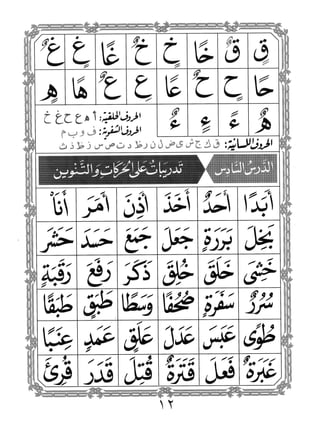 قٍ قٌ خًا خٍ خٌ غًا غٍ غٌ
حًا حٍ حٌ عًا عٍ عٌ هًا هٍ
هٌ ءً ءٍ ءٌ
الحروف الحلقية: أ ه ع ح غ خ
الحروف الشفوية: ف و ب م
الحروف اللسانية: ق ك ج ش ي ض ل ن ر ط د ت ص س ز ظ ذ ث
الدَّرسُ السَّادِس تَدريباتٌ عَلَى الحَرَكاتِ وَالتَّنوين
أَبَدًا أَحَدٌ أَخَذَ أَذِنَ أَمَرَ أَنَا
بَخِلَ بَرَرَةٍ جَعَلَ جَمَعَ حَسَدَ حَشَرَ
خَشِىَ خَلَقَ خُلِقَ ذَكَرَ رَفَعَ رَقَبَةٍ
سُرُرٌ سَفَرَةٍ صُحُفًا وَسَطًا طَبَقٍ طَبَقًا
طُوًى عَبَسَ عَدَلَ عَلَقٍ عَمَدٍ عِنَبًا
غَبَرَةٌ فَعَلَ قَتَرَةٌ قُتِلَ قَدَرَ قُرِئَ
١٢